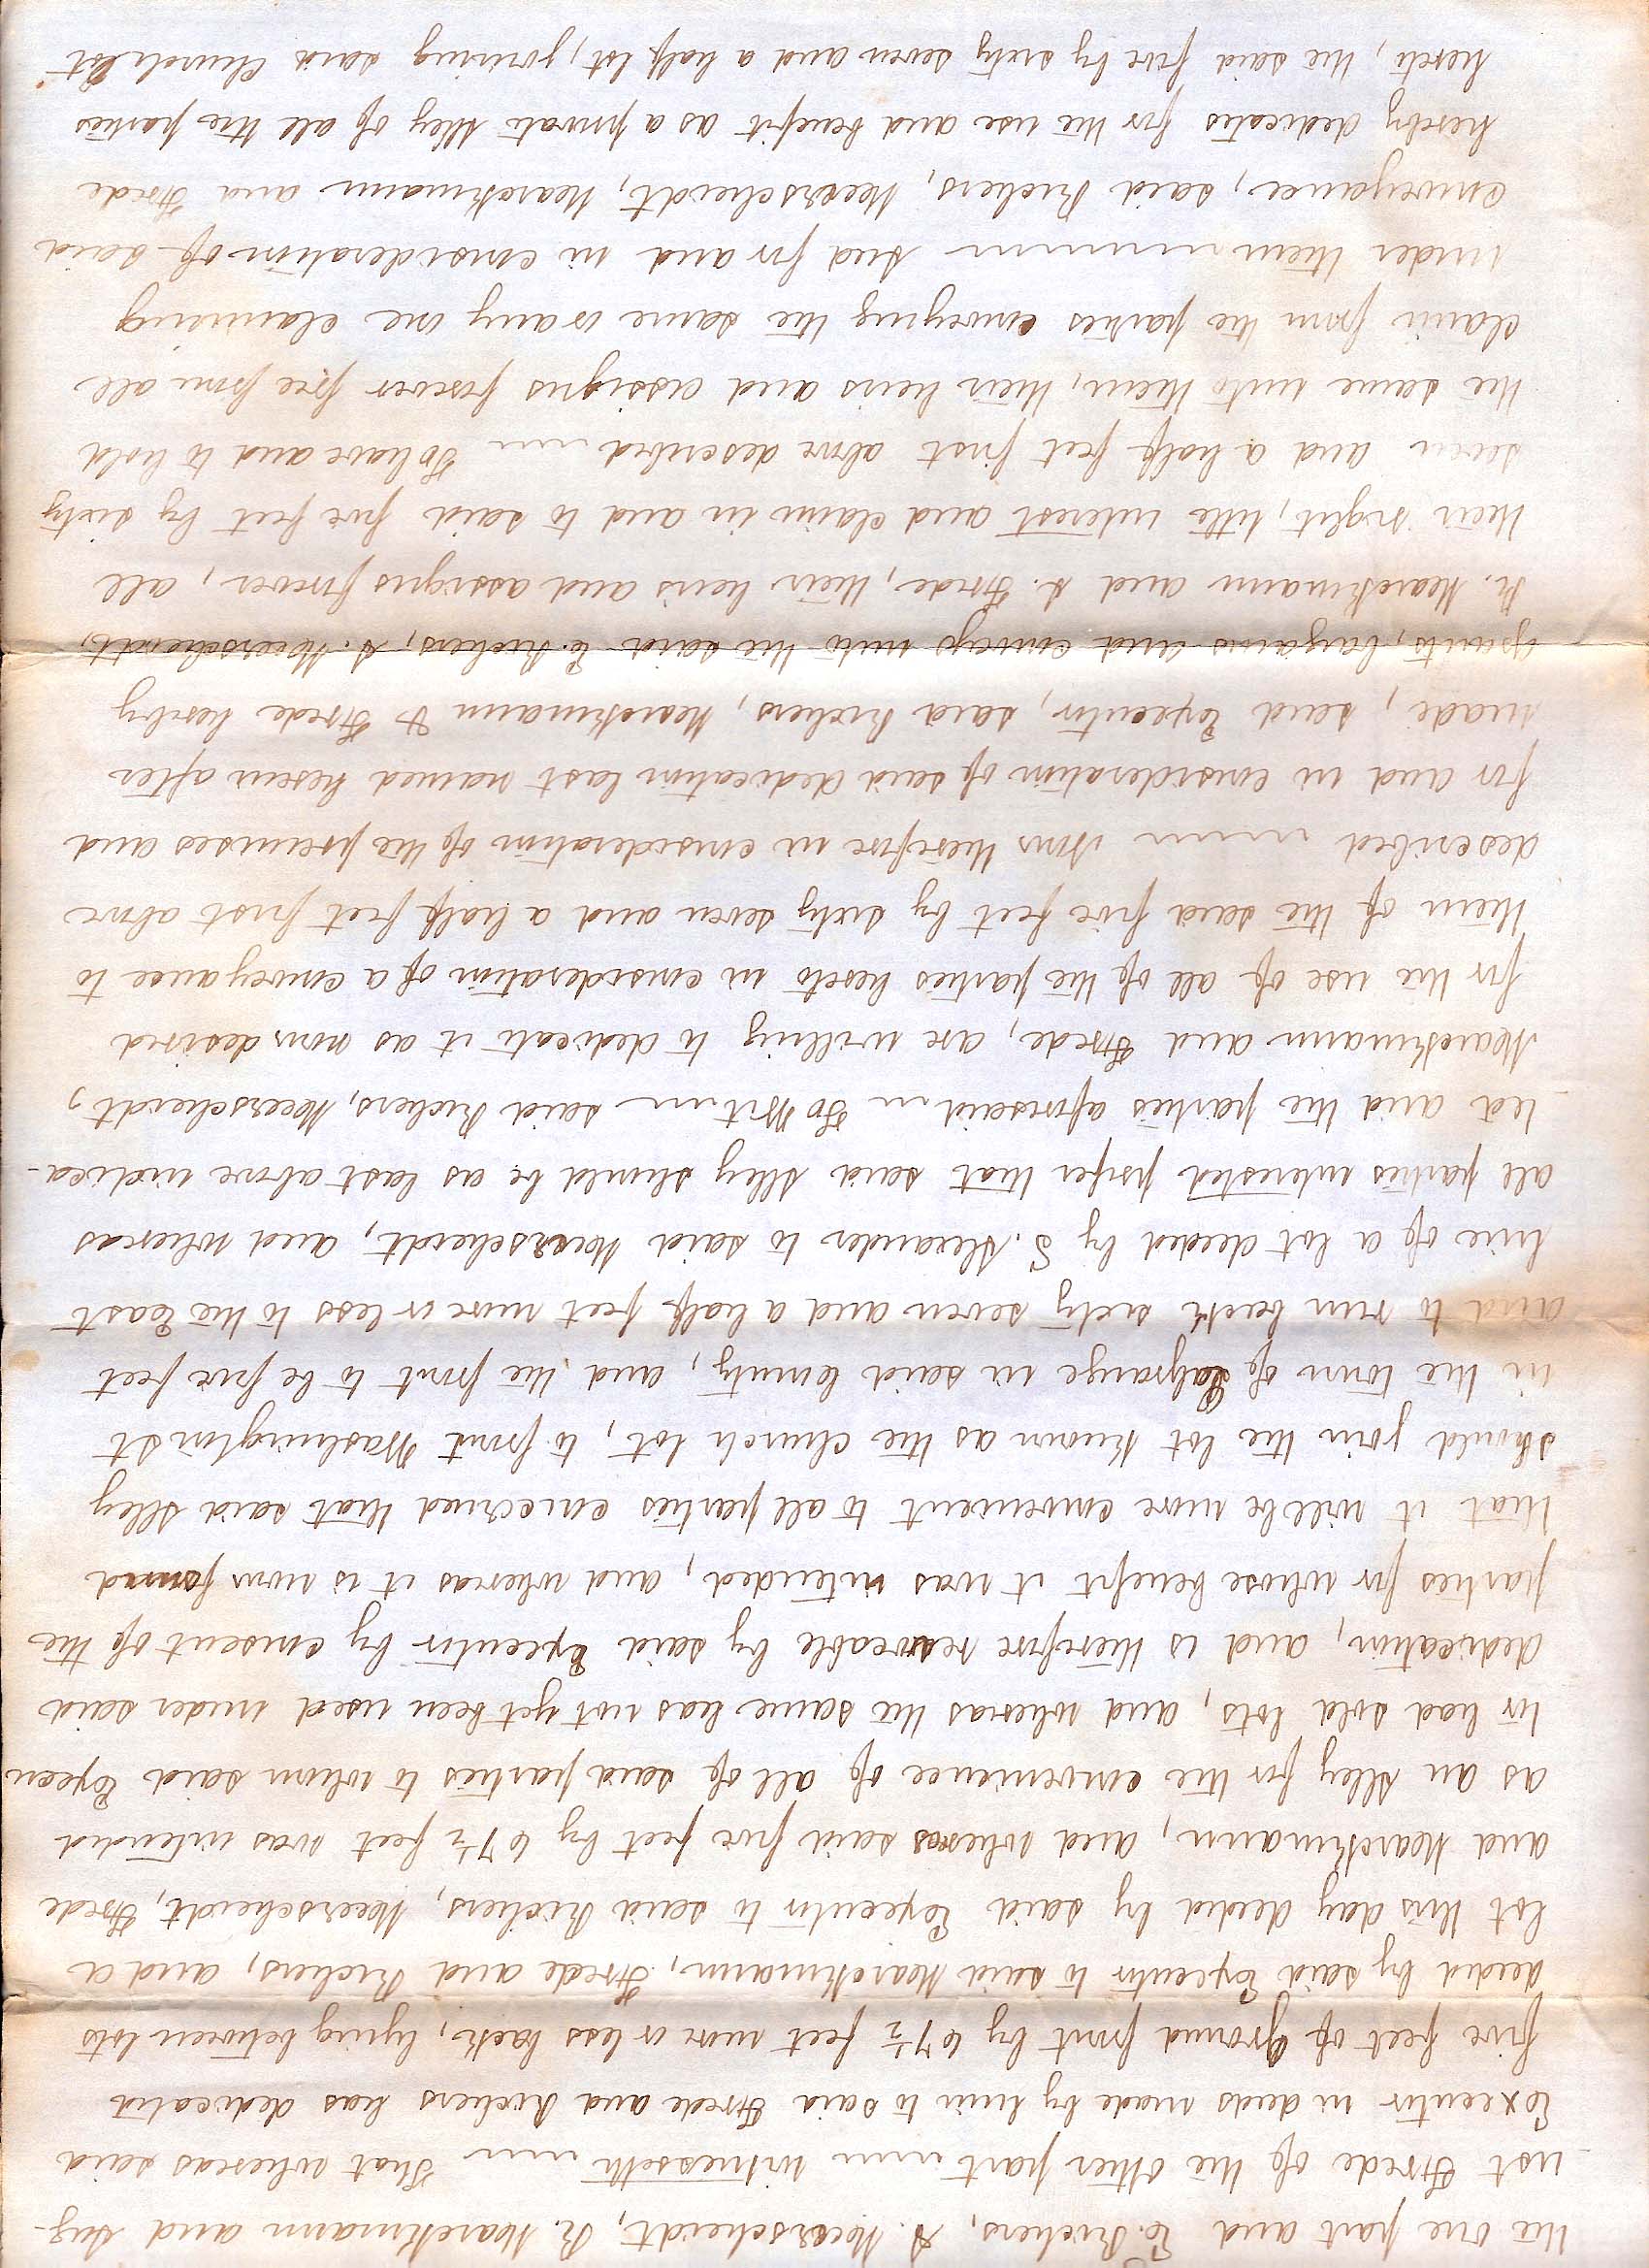 the one part and E. Richers, A. Meerscheidt, R. Harthmann and Aug-
ust Frede of the other part witnesseth That whereas said
Executor in deeds made by him to said Frede and Richers has dedicated
five feet of Ground front by 67½ feet more or less back, lying between lots
deeded by said Executor to said Harthmann, Frede and Richers, and a
lot this day deeded by said Executor to said Richers, Meerscheidt, Frede
and Harthmann, and whereas said five feet by 67½ feet was intended
as an Alley for the convenience of all of said parties to whom said Execu
tor had sold lots, and whereas the same has not yet been used under said
dedication, and is therefore revocable by said Executor by consent of the
parties for whose benefit it was intended, and whereas it is now found
that it will be more convenient to all parties concerned that said Alley
should join the lot known as the church lot, to front Washington St
in the town of LaGrange in said County, and the front to be five feet
and to run back sixty seven and a half feet more or less to the East
line of a lot deeded by S. Alexander to said Meerscheidt, and whereas
all parties interested prefer that said Alley should be as last above indica-
ted and the parties aforesaid To Wit said Richers, Meerscheidt,
Harthmann and Frede, are willing to dedicate it as now desired
for the use of all of the parties hereto in consideration of a conveyance to
them of the said five feet by sixty seven and a half feet first above
described Now therefore in consideration of the premises and
for and in consideration of said dedication last named herein after
made, said Executor, said Richers, Harthmann & Frede hereby
grants, bargains and conveys unto the said E. Richers, A. Meerscheidt,
R. Harthmann and A. Frede, their heirs and assigns forever, all
their right, title interest and claim in and to said five feet by sixty
seven and a half feet first above described To have and to hold
the same unto them, their heirs and assigns forever free from all
claim from the parties conveying the same or any one claiming
under them And for and in consideration of said
conveyance, said Richers, Meerscheidt, Harthmann and Frede
hereby dedicates for the use and benefit as a private Alley of all the parties
hereto, the said five by sixty seven and a half lot, joining said Church lot